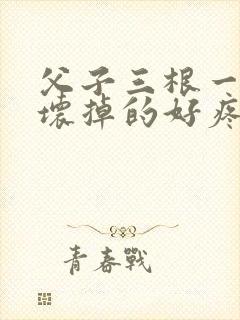 父子三根一
壞掉的好疼
青春戰